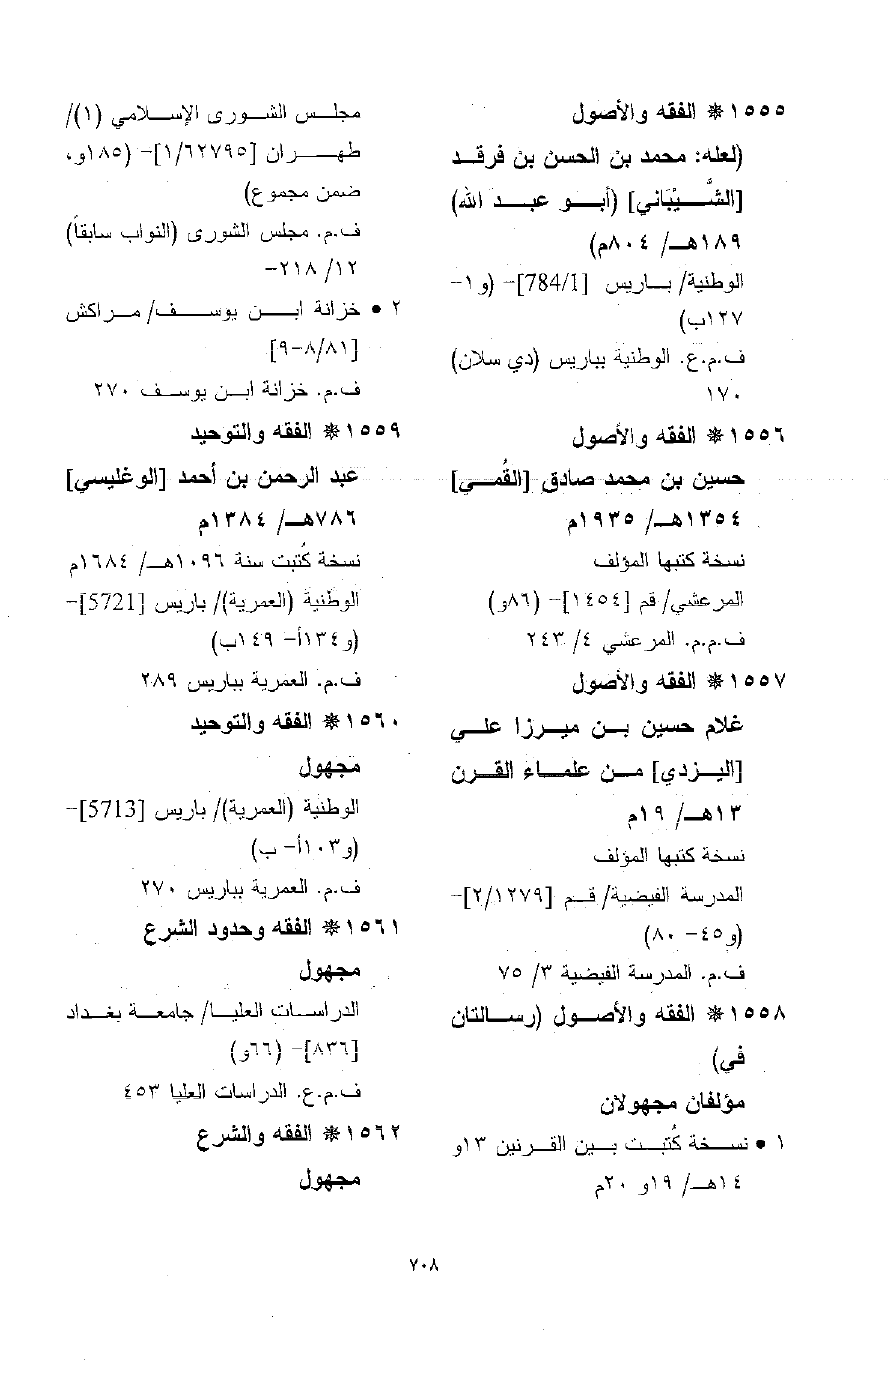 ١٥٥٥ * الفقه والأصول
(لعله: محمد بن الحسن بن فرقد
[الشَّيْبَاني] (أبو عبد الله)
١٨٩هـ/ ٨٠٤م)
الوطنية/ باريس [784/1]- (و١-
١٢٧ب)
ف.م.ع. الوطنية بباريس (دي سلان)
١٧٠
١٥٥٦ * الفقه والأصول
حسين بن محمد صادق [القُمي]
١٣٥٤هـ/ ١٩٣٥م
نسخة كتبها المؤلف
المرعشي/ قم [١٤٥٤]- (٨٦و)
ف.م.م. المرعشي ٤/ ٢٤٣
١٥٥٧ * الفقه والأصول
غلام حسين بن ميرزا علي
[اليزدي] من علماء القرن
١٣هـ/ ١٩م
نسخة كتبها المؤلف
المدرسة الفيضية/ قم [٢/١٢٧٩]-
(و٤٥- ٨٠)
ف.م. المدرسة الفيضية ٣/ ٧٥
١٥٥٨ * الفقه والأصول (رسالتان
في)
مؤلفان مجهولان
١ • نسخة كُتبت بين القرنين ١٣و
١٤هـ/ ١٩و ٢٠م
مجلس الشورى الإسلامي (١)/
طهران [١/٦٢٧٩٥]- (١٨٥و،
ضمن مجموع)
ف.م. مجلس الشورى (النواب سابقاً)
١٢/ ٢١٨-
٢ • خزانة ابن يوسف/ مراكش
[٨/٨١-٩]
ف.م. خزانة ابن يوسف ٢٧٠
١٥٥٩ * الفقه والتوحيد
عبد الرحمن بن أحمد [الوغليسي]
٧٨٦هـ/ ١٣٨٤م
نسخة كُتبت سنة ١٠٩٦هـ/ ١٦٨٤م
الوطنية (العمرية)/ باريس [5721]-
(و١٣٤أ- ١٤٩ب)
ف.م. العمرية بباريس ٢٨٩
١٥٦٠ * الفقه والتوحيد
مجهول
الوطنية (العمرية)/ باريس [5713]-
(و١٠٣أ- ب)
ف.م. العمرية بباريس ٢٧٠
١٥٦١ * الفقه وحدود الشرع
مجهول
الدراسات العليا/ جامعة بغداد
[٨٣٦]- (٦٦و)
ف.م.ع. الدراسات العليا ٤٥٣
١٥٦٢ * الفقه والشرع
مجهول
٧٠٨